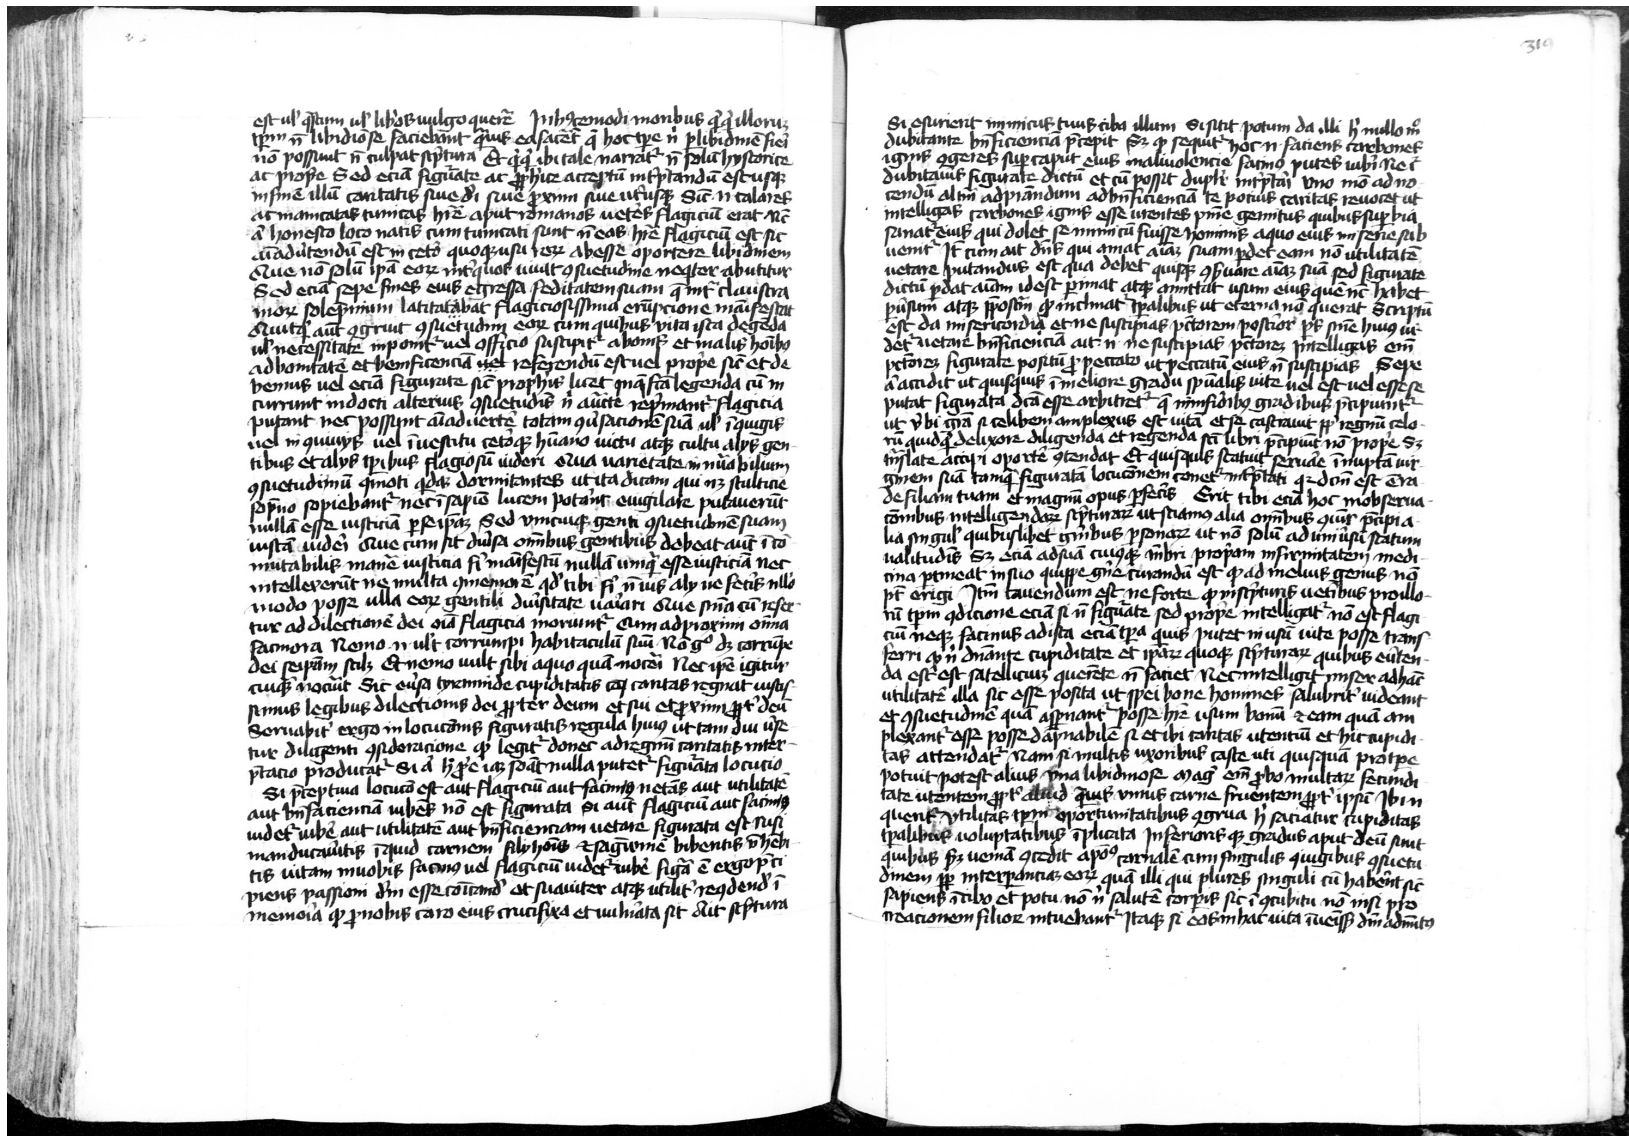 est ul' q̄stum ul' lib'os uulgo quer̄e In hui9cemodi moribus q̄cq̄ illoruꝫ
tp̄m n̄ libidiōse faciebānt q̄uis ea facēt q̄ hoc tp̄e n̄ p̄ libidinē fieri
nō possunt n̄ culpat sc̄ptura Et q̄cq̄ ibi tale narrat᷑ n̄ solū hystorice
ac prop̄e Sed eciā figurāte ac ꝓph̄ice acceptū int̄p̄tandū est usqꝫ
in finē illū caritatis siue dei siue ꝓximi siue utriusqꝫ Sic̄ n̄ talares
ac manicatas tunicas hr̄e aput romanos ueter̄s flagiciū erat nūc
aū honesto loco natis cum tunicati sunt n̄ eas hr̄e flagiciū est sic
aīaduertendū est in ceter̄o quoqꝫ usu reꝝ abesse oportere libidinem
Que nō solū ip̄ā eoꝝ int̄ quos uiuit ꝯsuetudinē neqter abutitur
Sed eciā sepe fines eius egressa feditatem suam q̄ int̄ claustra
moꝝ solepnium latitabat flagiciosissima erupcione manifestat
Quitq̄d aūt ꝯgruit ꝯsuetudini eoꝝ cum quibus uita ista degenda
ul' necessitate inponit᷑ uel officio suscipit᷑ a bonis et malis hoībo
ad bonitatē et beneficenciā uel referendū est uel prop̄e sic̄ et de
bemus uel eciā figurate sic̄ prophetis licet in q̄ fc̄ā legenda cū in
currunt indocti alterius ꝯsuetudinis n̄ aūctē rep̄mant᷑ flagicia
putant nec possunt aīaduertē totam ꝯūsacionē suā ul' ī ꝯiugiis
uel in ꝯuiuiis uel ī uestitu ceteroqꝫ hūano uictu atqꝫ cultu alijs gen-
tibus et alijs tp̄ibus flagiosū uideri Qua uarietate innūabilium
ꝯsuetudinū ꝯmoti quidaꝫ dormitantes ut ita dicam qui neqꝫ stulticie
sopno sopiebant᷑ nec ī sapīe lucem poterāt euigilare putauerūt
nullā esse iusticiā p̄ seip̄aꝫ Sed unicuiqꝫ genti ꝯsuetudinē suam
iustā uideri Que cum sit diuersa omībus gentibus debeat aūt ī cō
mutabilis manē iusticia fi' manifestū nullā usq̄ esse iusticiā nec
intellexerūt ne multa ꝯmemorē qd' tibi fi' n̄ uis alij ne feceris nllo
modo posse ulla eoꝝ gentili diuersitate uariari Que sn̄ia cū refer
tur ad dilectionē dei oīa flagicia moriunt᷑ Cum ad proximi omīa
facinora Nemo n̄ uult corrumpi habitaculū suū Nō gͦ dꝫ corrūpe
dei seipsam scilꝫ Et nemo uult sibi aquo quā noceri Nec ip̄e igitur
cuiq̄ nocuit Sic euersa tyrannide cupiditatis caritas regnat iustis
simus legibus dilectionis dei propter deum et sui et ꝓximi ꝓpt' deū
Seruabit᷑ ergo in locuconis figuratis regula huius ut tam diu use
tur diligenti ꝯsideracione qd' legit᷑ donec ad regnū caritatis inter-
p̄tacio producat᷑ Si aū h' ꝓp̄e iaꝫ sonāt nulla putet᷑ figurāta locucio
Si p̄ceptiua locucō est aut flagiciū aut facinus uetans aut utilitatē
aut bn̄ficienciā iubēs nō est figurata Si aūt flagiciū aut facinus
uidet᷑ iubē aut utilitatē aut bn̄ficienciam uetare figurata est Nisi
manducaueritis īquid carnem filij hoīs et sang̃uinē biberitis n̄ hēbi
tis uitam in uobis facinus uel flagiciū uidet᷑ iubē figura ē ergo p̄ci
piens passioni dn̄i esse coīcand' et suauiter atqꝫ utilit᷑ recōdend' ī
memoria qd' pro nobis caro eius crucifixa et uulnerata sit Ait sc̄ptura
319
Si esurierit inimicus tuus ciba illum Si sitit potum da illi h' nullo mͦ
dubitante bn̄ficienciā p̄cepit Sꝫ qd' sequit᷑ hoc n̄ faciens carbones
ignis ꝯgeres sup̄ caput eius maliuolencie facino putes iub'i Ne ī
dubitaueris figurate dictū et cū possit duplr̄ int̄p̄tari vno mō ad no
cendū alt̄o ad p̄standum ad bn̄ficienciā te potius caritas reuocet ut
intelligas carbones ignis esse urentes pn̄ie gemitus quibus sup̄bia
sanat᷑ eius qui dolet se inimicū fuisse hominis aquo eius miserie sub
uenit᷑ It̄ cum ait dn̄s qui amat aīaꝫ suam p̄det eam nō utilitatē
uetare putandus est qua debet quisqꝫ ꝯseruare aīaꝫ suā sed figurate
dictū perdat aīam id est perimat atqꝫ amittat usum eius quē nūc habet
p̄uersum atqꝫ p̄posterum quo inclinat᷑ tp̄alibus ut eterna nō querat Scriptū
est da misericordiā et ne suscipias p̄ctorem posterior pars sn̄ie huius ui-
det᷑ uetare bn̄ficienciā ait n̄ ne suscipias p̄ctoreꝫ Intelligas em̄
p̄ctoreꝫ figurate positū pro peccato ut peccatū eius n̄ suscipias Sepe
aū accidit ut quisquis ī meliore gradu sp̄ualis uite uel est uel esse se
putat figurata dcā esse arbitret᷑ q̄ inferioribus gradibus p̄cipiunt᷑
ut v'bi grā si celibem amplexus est uitā et se castrauit ꝓpt' regnū celo-
rū quidq̄d de uxore diligenda et regenda sc̄i libri p̄cipiunt nō prop̄e Sꝫ
tn̄slate accipi oportere ꝯtendat Et quisquis statuit seruare īnuptā uir-
ginem suā tamq̄ figuratā locucionem conet᷑ int̄p̄tari qua dcm̄ est Tra-
de filiam tuam et magnū opus p̄feceris Erit tibi eciā hoc in obserua
cōnibus intelligendaꝝ sc̄pturaꝝ ut sciamus alia omnibus cōiter p̄cipi a-
lia singul' quibuslibet gn̄ibus personaꝝ ut nō solū ad uniūsū statum
ualitudinis Sꝫ eciā ad suā cuiusqꝫ mēbri propriam infirmitatem medi
cina p̄tineat in suo quippe gn̄e curandū est qd' ad melius genus nō
pt̄ erigi Item cauendum est ne forte qd' in scripturis ueteribus pro illo-
rū tp̄m ꝯdicione eciā si n̄ figurate sed prop̄e intelligat᷑ nō est flagi
ciū neqꝫ facinus ad ista eciā tp̄a quis putet in usū uite posse trans
ferri qd' n̄ dn̄ante cupiditate et ipaꝝ quoqꝫ sc̄pturaꝝ quibus euerten-
da est est satelliciuꝫ querente n̄ faciet Nec intelligit miser ad hāc
utilitatē illa sic esse posita ut spei bone homines salubrit᷑ uideant
et ꝯsuetudinē quā aspernant᷑ posse hr̄e usum bonū et eam quā am
plexant᷑ esse posse dāpnabilē si et ibi caritas utentiū et hic cupidi-
tas attendat᷑ Nam si multis uxoribus caste uti quisquā pro tp̄e
potuit potest alius vna libidinose Magis em̄ probo multaꝝ fecundi-
tate utentem ꝓpt' aliud q̄uis vnius carne fruentem ꝓpt' ipsū Ibi n̄
querit᷑ vtilitas tp̄m oportunitatibus ꝯgrua h' saciatur cupiditas
tp̄alibus uoluptatibus īplicata Inferioris qꝫ gradus aput deū sunt
quibus sꝫ ueniā ꝯcedit apo9 carnalē cum singulis ꝯiugibus ꝯsuetu
dinem ꝓp' interperanciaꝫ eoꝝ quā illi qui plures singuli cū haberēt sic
sapiens ī cibo et potu nō nisi salutē corporis sic ī ꝯcubitu nō nisi pro
creacionem filioꝝ intuebant᷑ Itaqꝫ si eos in hac uita īuenissꝫ dn̄i aduentus